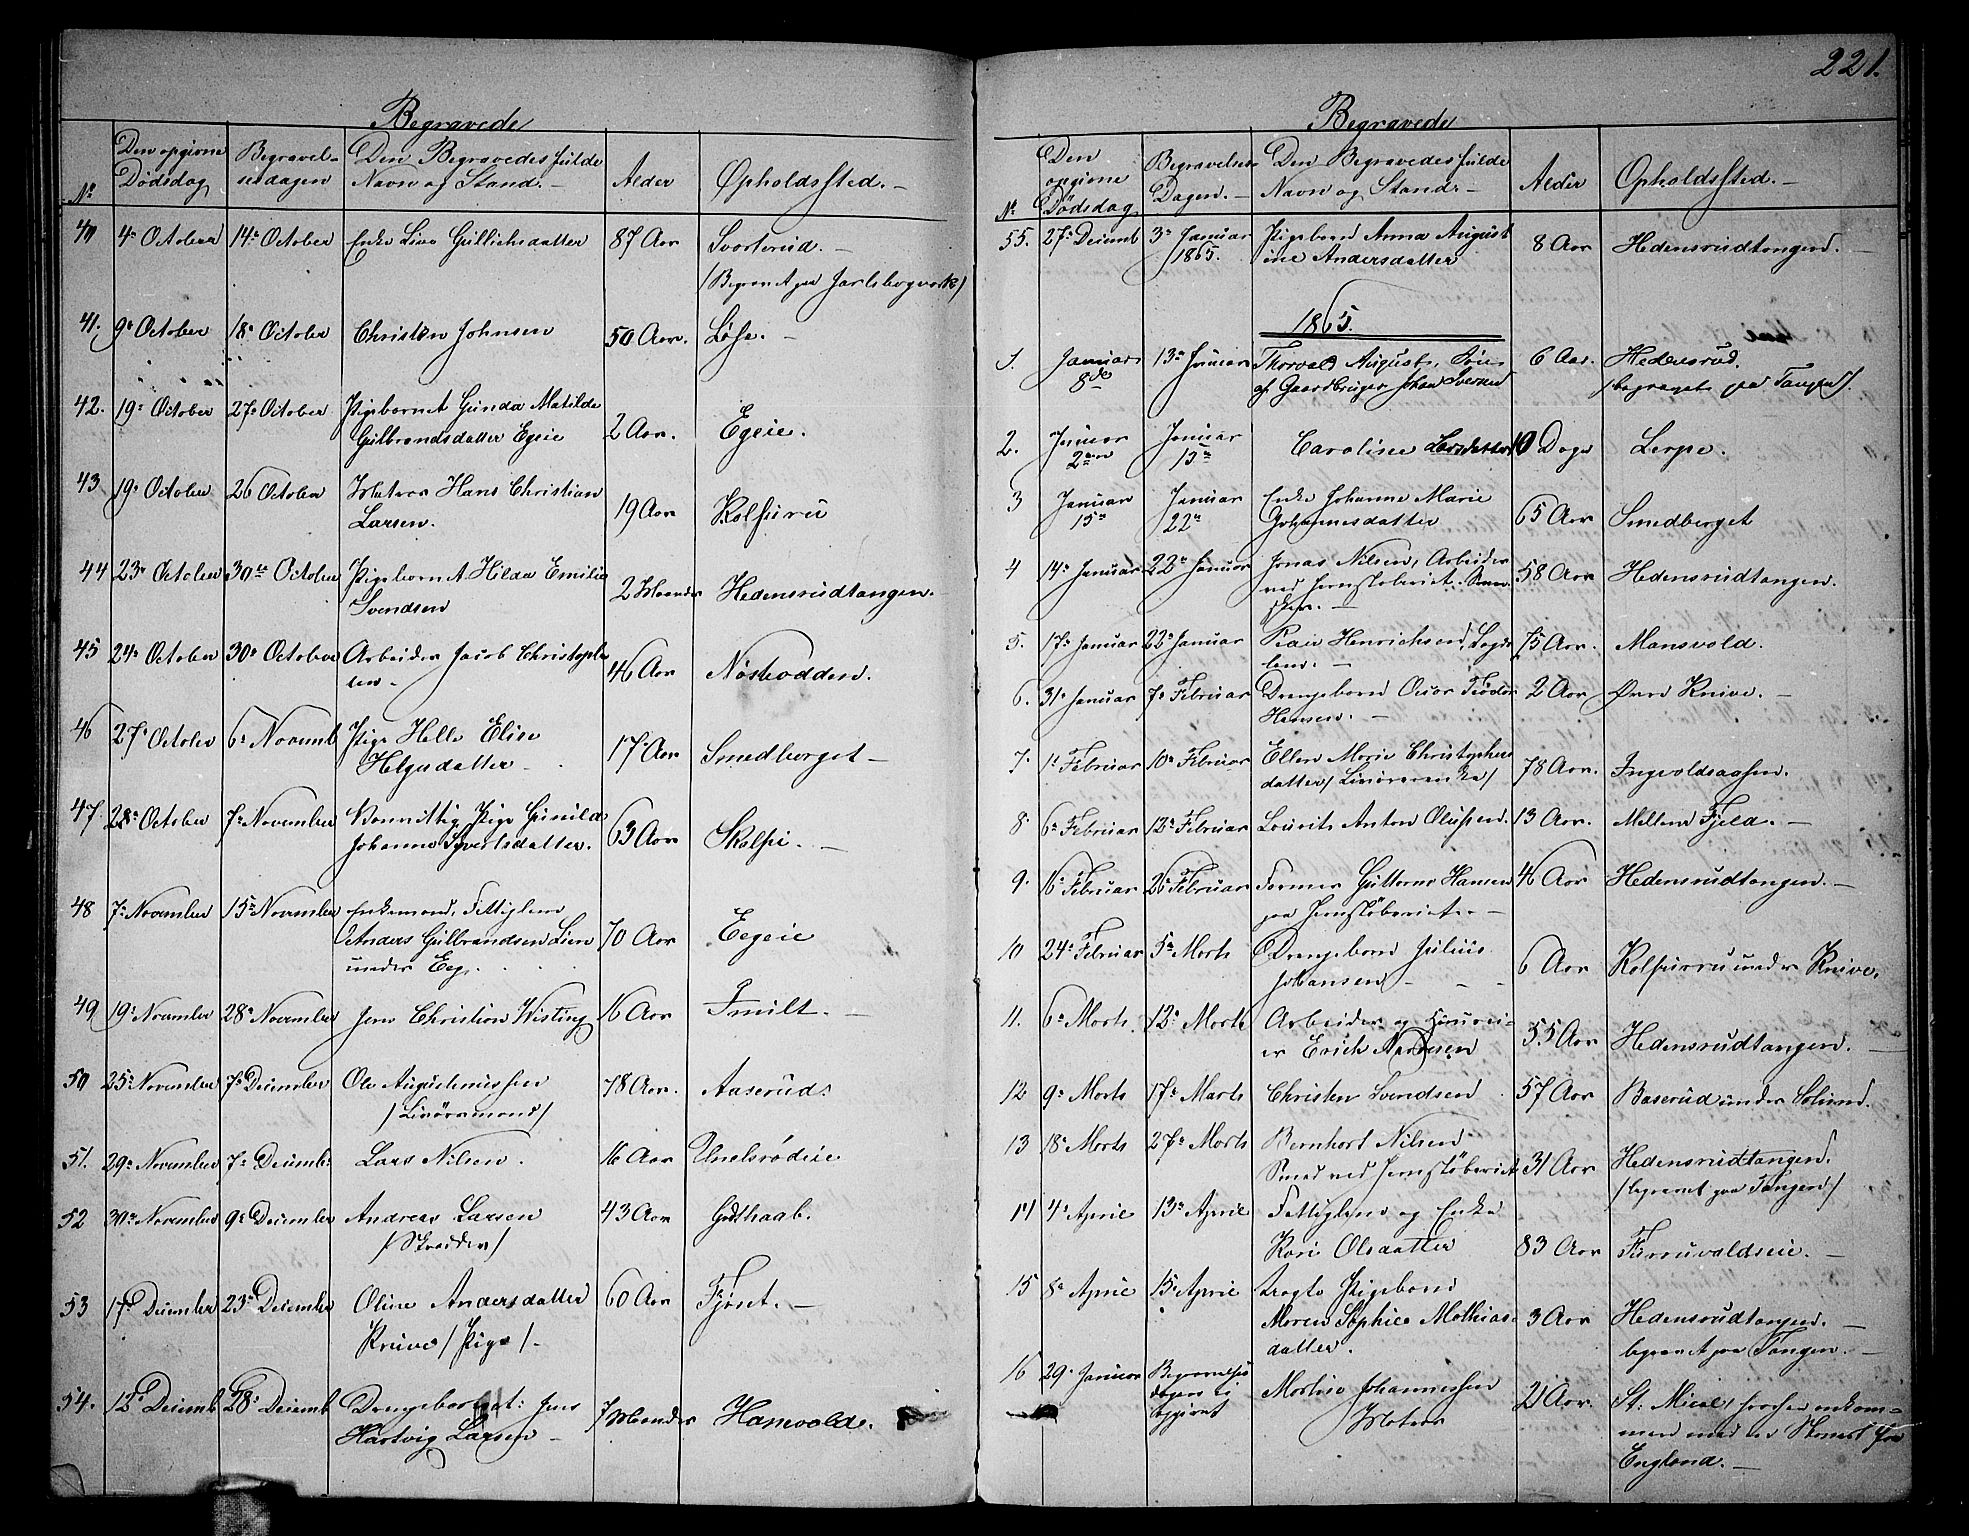 221.
Begravede
No
Den opgivne Dødsdag
Begravelsesdagen
Den Begravedes fulde Navn og Stand. –
Alder
Opholdssted. –
40 4de October 14de October Enke Live Gullichsdatter 87 Aar Svarterud. –
/Begravet paa Jarlsbergværk/
41. 9de October 18de October Christen Johnsen 50 Aar. –
42. 19de October 27de October Pigebarnet Gunda Matilde
Gulbrandsdatter Egeie 2 Aar. Egeie.
43 19de October 26 October Matros Hans Christian
Larsen. 19 Aar Kolsuru
44 23de October 30te October Pigebarnet Hilda Emilie
Svendsen 2 Maander Hedensrudtangen.
45 24de October 30te October Arbeider Jacob Christophersen – 46 Aar
46 27de October 6te Novemb Pige Helle Elise
Helgesdatter – 17 Aar Smedberget –
47. 28de October 7de November Vanvittig Pige Gunild
Johanne Syvertsdatter. 63 Aar Skalpi. –
48 7de November 15de November Enkemand, Fattiglem
Anders Gulbrandsen Lien
under Eeg. 70 Aar Eegeie
49 19de November 28de November Jens Christian Wisting 16 Aar Smilt. –
50 25de November 7de December Ole Augustinussen
/Livøremand/ 78 Aar. Aaserud
51. 29de November 7de Decemb: Lars Nilsen. 16 Aar
52 30te November 9de December Andreas Larsen
/Skrædder/ 43 Aar Godthaab.
53 17de December 23de December Oline Andersdatter
Knive /Pige/. 60 Aar –
54. 12te Decemb. 28de Decemb. Drengebarnet: Jens
Hartvig Larsen – 7 Maander Hamvolde.
Begravede
No
Den opgivne Dødsdag
Begravelses Dagen. –
Den Begravedes fulde Navn og Stand. –
Alder
Opholdssted. –
55. 27de Decemb 3de Januar
1865. Pigebarn Anna Augustine Andersdatter 8 Aar Hedensrudtangen. –
1865.
1. Januar
8de 13de Januar Thorvald August, Søn
af Gaardbruger Johan Iversen 6 Aar. Hedensrud.
/begravet paa Tangen/.
2. Januar
2den Januar
13de Caroline Larsdatter 10 Dage Lerpe.
3 Januar
15de Januar
22de Enke Johanne Marie
Johannesdatter 65 Aar Smedberget
4 14de Januar 22de Januar Jonas Nilsen, Arbeider
ved Jernstøberiet. Svensker. – 58 Aar Hedensrudtangen.
5. 17de Januar 22de Januar Henrichsen, Lægdslem. – 75 Aar. Mansvold.
6. 31te Januar 7de Februar Drengebarn Oscar Tiodor
Hansen. – 2 Aar Øvre Knive. –
7. 1te Februar 10de Februar Ellen Marie Christophersdatter /Livøreenke/ 78 Aar. Ingvoldsaasen.
8 6te Februar 12te Februar Lourits Anton Olufsen. 13 Aar. Mellem Fjeld. –
9. 16de Februar 26de Februar Former Guttorm Hansen
paa Jernstøberiet. – 46 Aar Hedensrudtangen. –
10 24de Februar 5te Marts Drengebarn Julius
Johansen – 6 Aar Kolsurru under Knive.
11. 6te Marts 12te Marts Arbeider og
Erich 55 Aar Hedensrudtangen. –
12 9de Marts 17de Marts Christen Svendsen 57 Aar Baserud under Solum.
13 18de Marts 27de Marts Bernhart Nilsen
Smed ved Jernstøberiet 31 Aar Hedensrudtangen.
/begravet paa Tangen/
14 4de April 13de April Fattiglem og Enke
Kari Olsdatter 83 Aar Furruvaldseie. –
15 8de April 15de April Pigebarn
Maren Sophie Mathiasdatter. 3 Aar Hedensrudtangen. –
begravet paa Tangen. –
16 29de Januar Begravelsesdagen ei
opgivet Martin Johannessen
Matros 21 Aar. St:
med en Skonnert fra
England. –